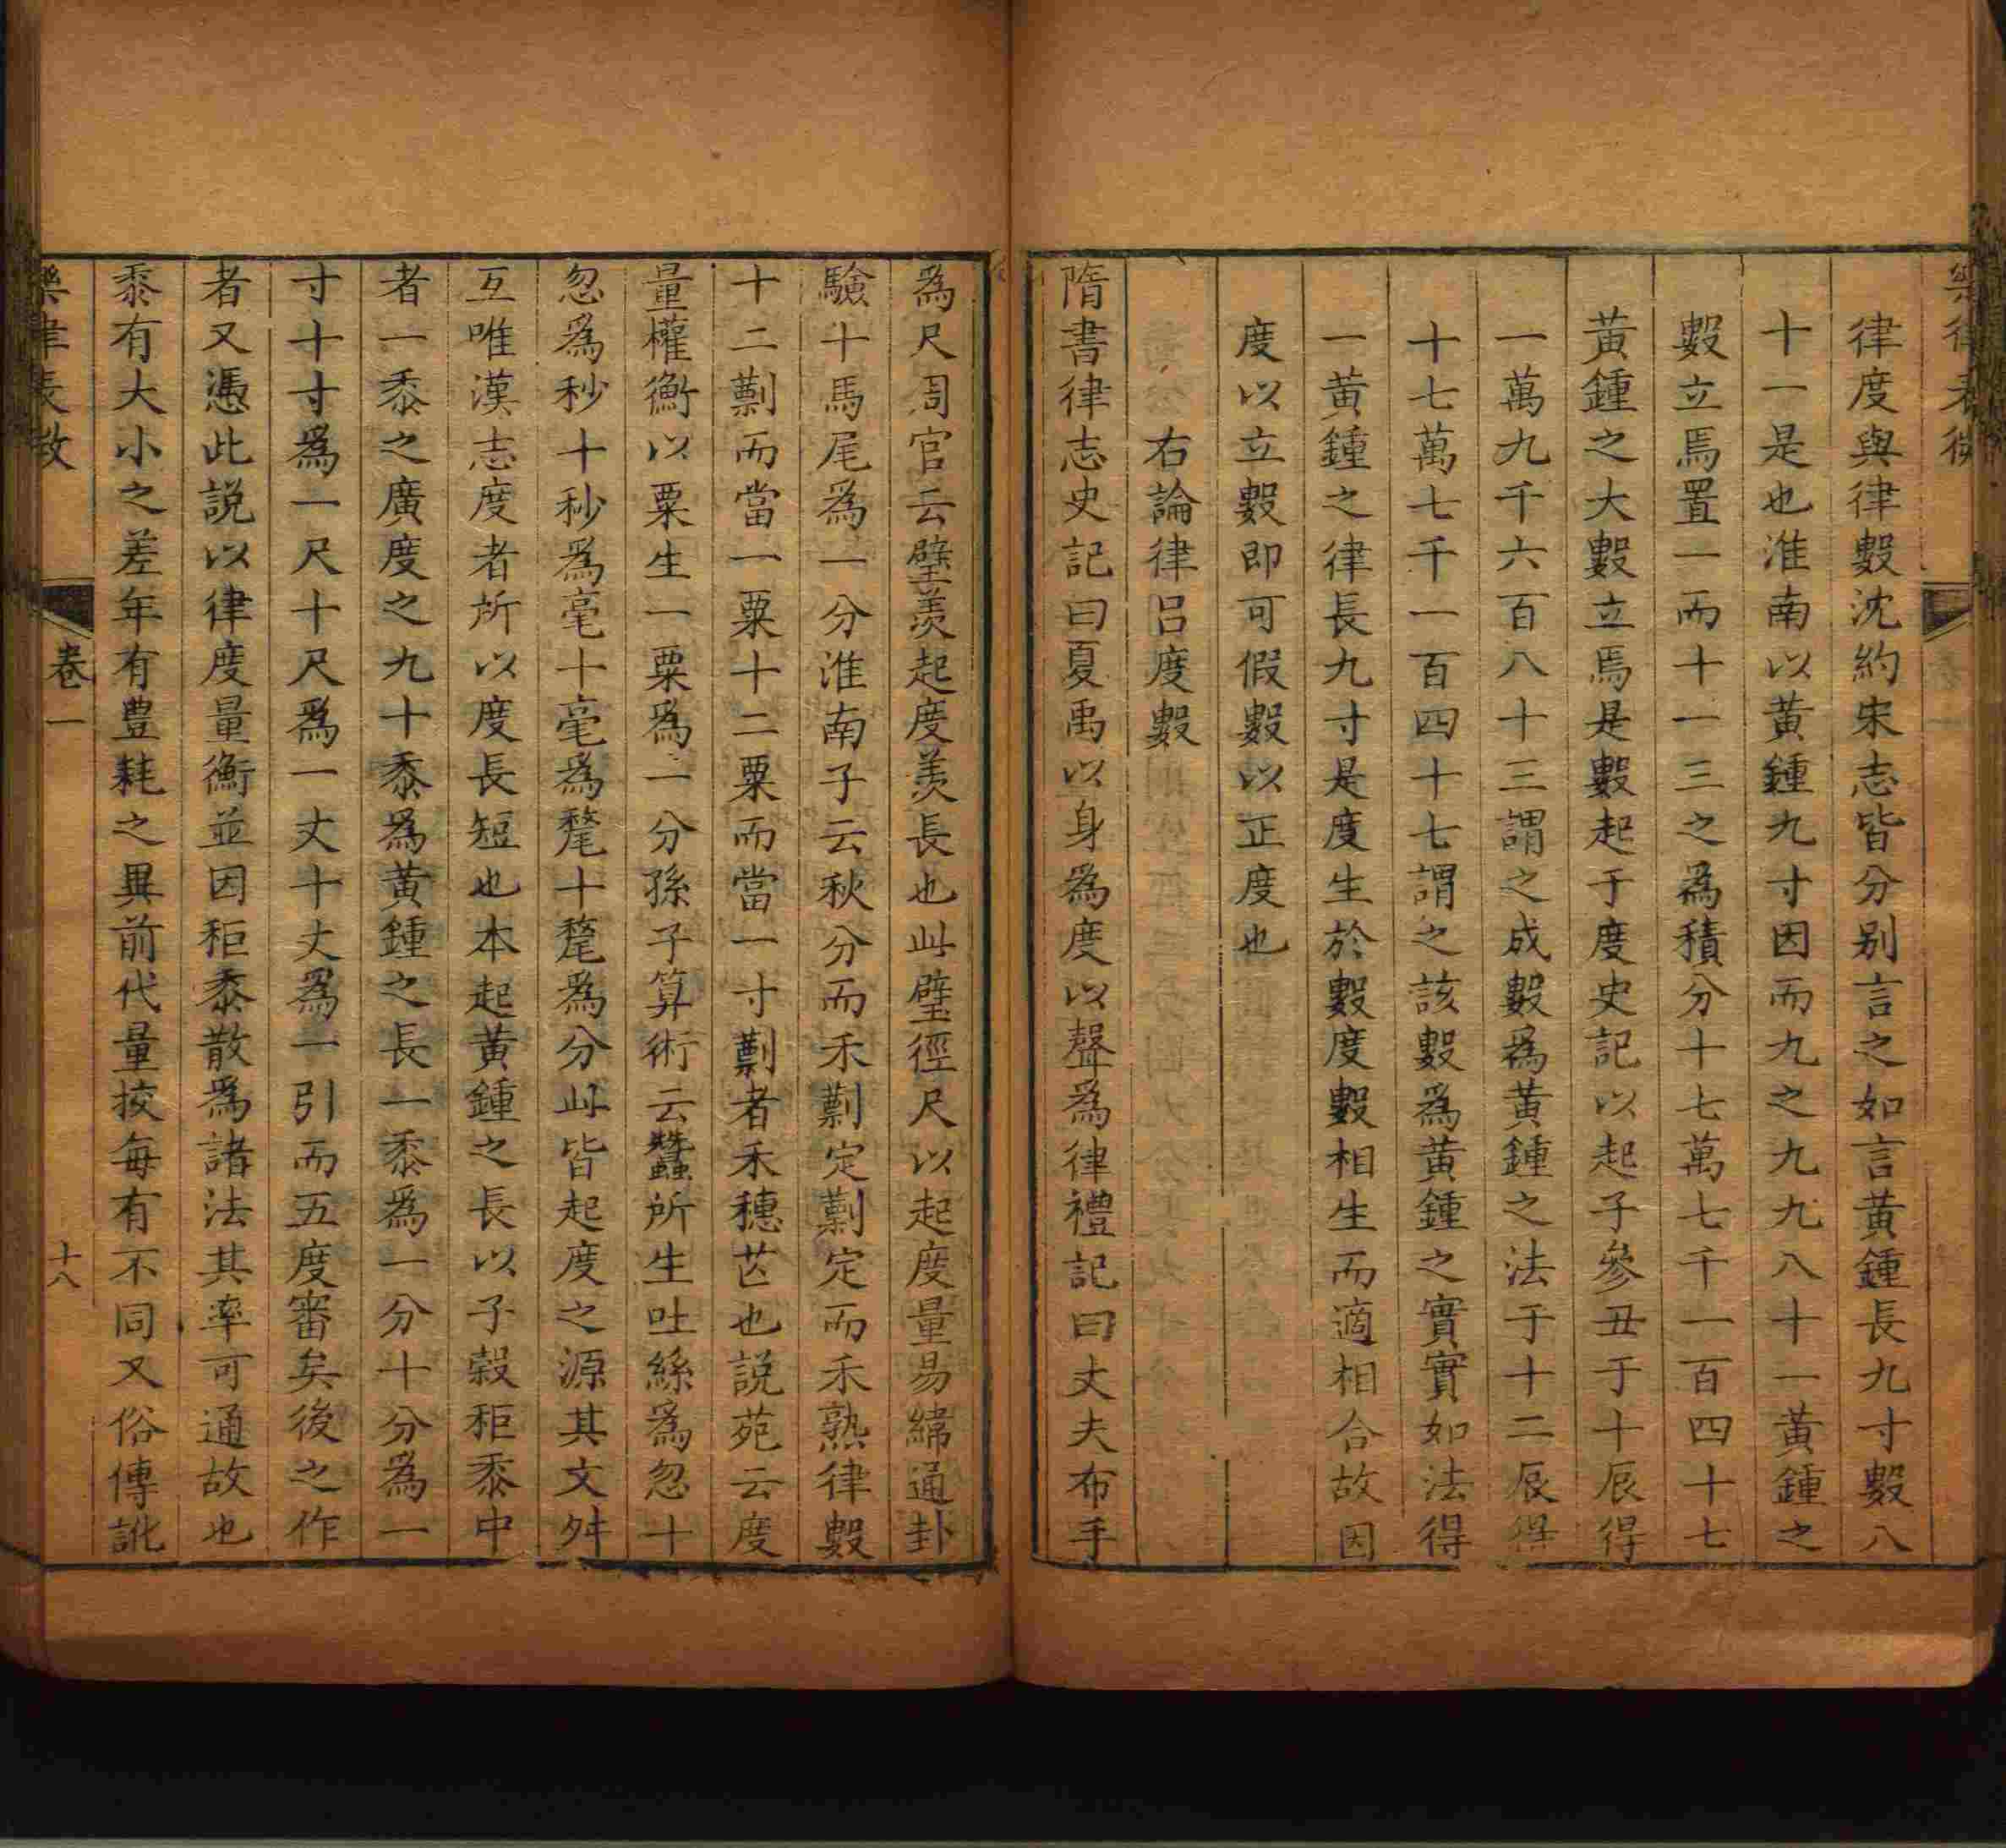 樂律表微
律度與律數沈約宋志皆分别言之如言黃鍾長九寸數八
十一是也淮南以黃鍾九寸因而九之九九八十一黃鍾之
數立焉置一而十一三之為積分十七萬七千一百四十七
黃鍾之大數立焉是數起于度史記以起子參丑于十辰得
一萬九千六百八十三謂之成數為黃鍾之法于十二辰得
十七萬七千一百四十七謂之該數為黃鍾之實實如法得
一黃鍾之律長九寸是度生於數度數相生而適相合故因
度以立數即可假數以正度也
右論律呂度數
隋書律志史記曰夏禹以身為度以聲為律禮記曰丈夫布手
為尺周官云璧羨起度羨長也此璧徑尺以起度量易緯通卦
驗十馬尾為一分淮南子云秋分而禾䅺定䅺定而禾熟律數
十二䅺而當一粟十二粟而當一寸䅺者禾穗芒也説苑云度
量權衡以粟生一粟為一分孫子算術云蠶所生吐絲為忽十
忽為秒十秒為毫十毫為氂十氂為分此皆起度之源其文舛
互唯漢志度者所以度長短也本起黃鍾之長以子穀秬黍中
者一黍之廣度之九十黍為黃鍾之長一黍為一分十分為一
寸十寸為一尺十尺為一丈十丈為一引而五度審矣後之作
者又憑此説以律度量衡並因秬黍散為諸法其率可通故也
黍有大小之差年有豊耗之異前代量挍每有不同又俗傳訛
樂律表微 卷一 十八